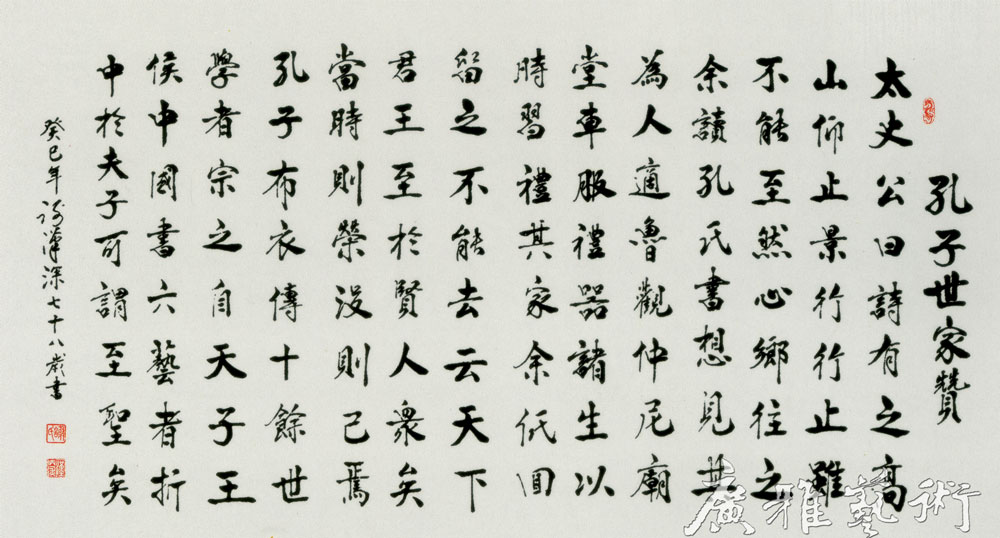 孔子世家贊
太史公曰詩有之高
山仰止景行行止雖
不能至然心鄉往之
余讀孔氏書想見其
為人適魯觀仲尼廟
堂車服禮器諸生以
時習禮其家余低回
留之不能去云天下
君王至於賢人眾矣
當時則榮沒則已焉
孔子布衣傳十餘世
學者宗之自天子王
侯中國書六藝者折
中於夫子可謂至聖矣
癸巳年深七十八歲書
廣雅藝術